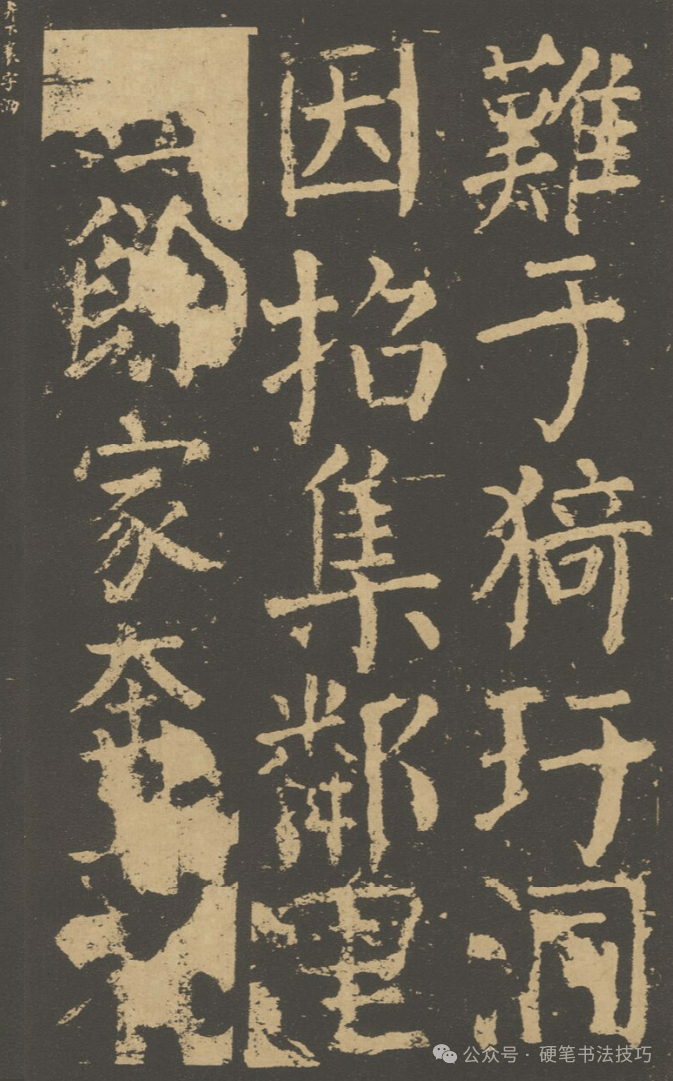 難于猗玗洞
因招集鄰里
家奔
公众号·硬笔书法技巧